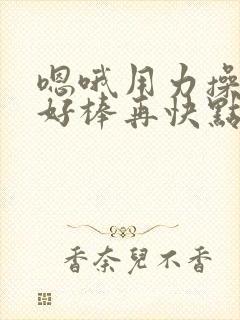 嗯哦用力操
好棒再快點
香奈兒不香